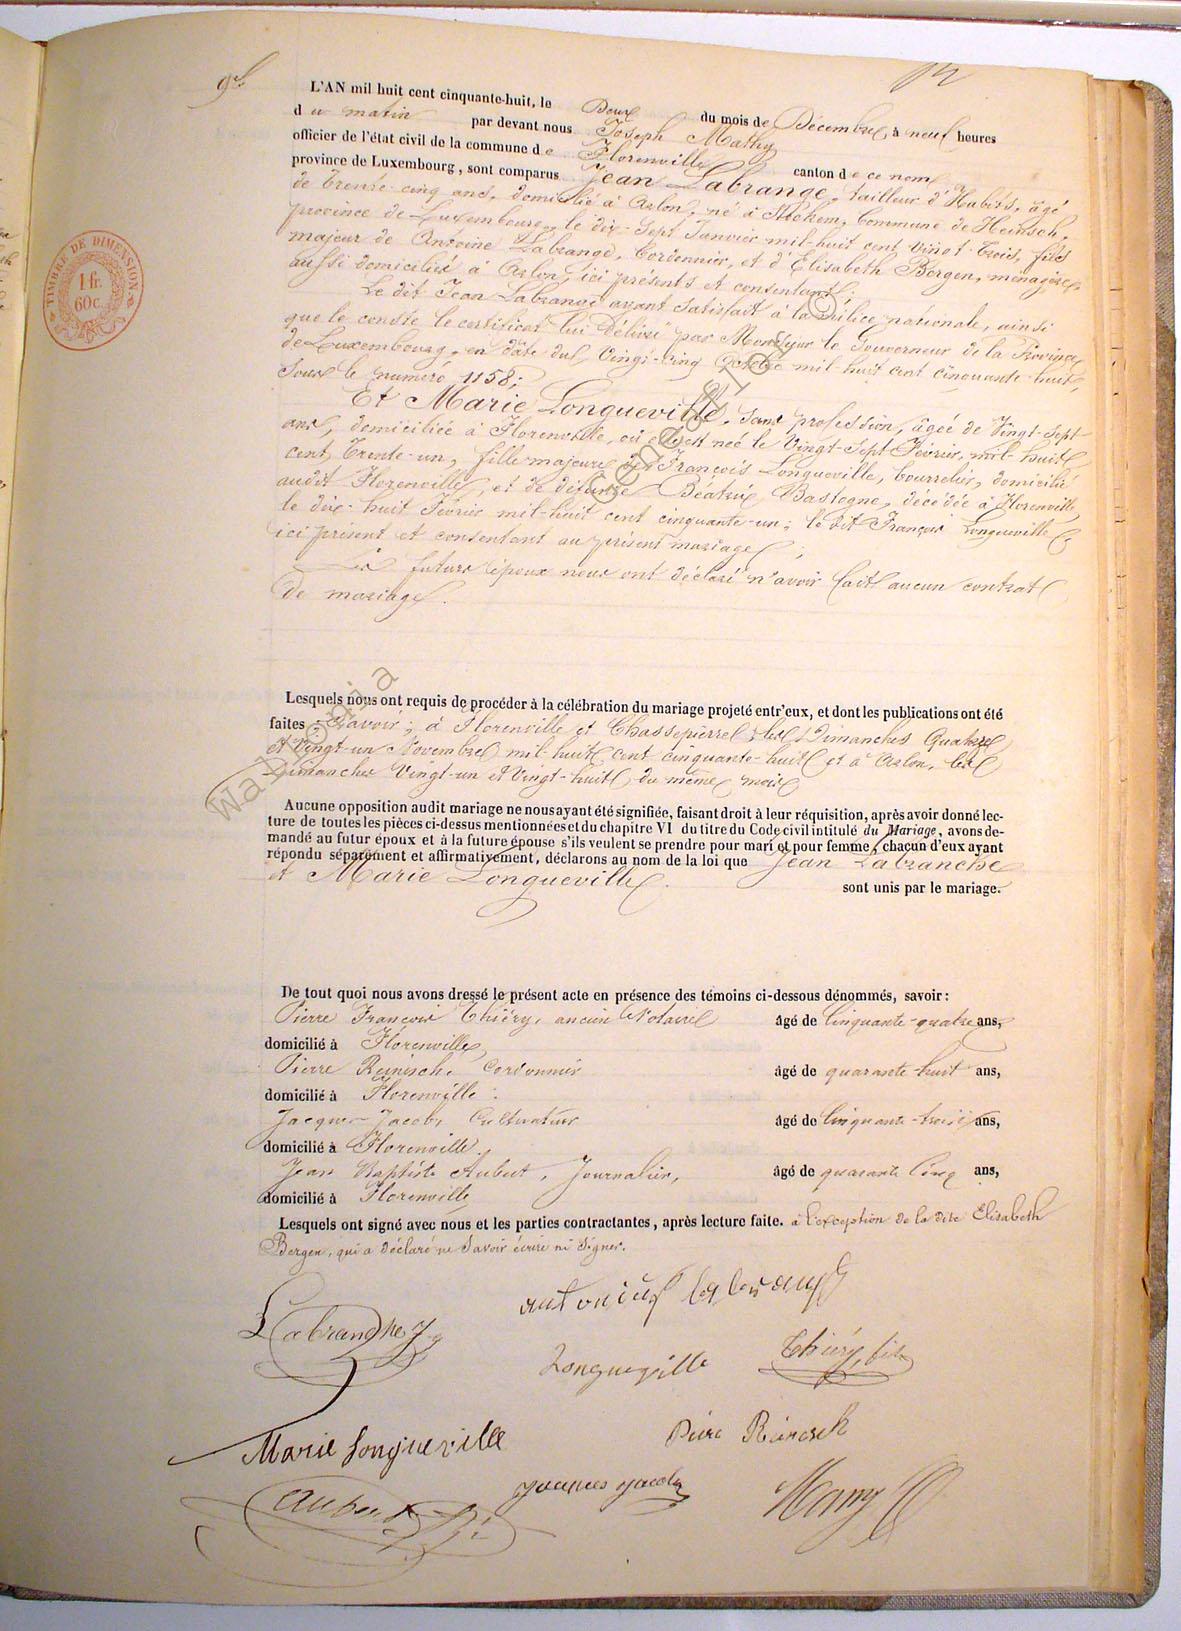 L'AN mil huit cent cinquante-huit, le Deux du mois de Décembre, à neuf heures
du matin par devant nous Joseph Mathy
officier de l'état civil de la commune de Florenville canton de ce nom
province de Luxembourg, sont comparus Jean Labrange, tailleur d'Habits, âgé
de Trente-cinq ans, domicilié à Arlon, né à Stockem, Commune de Heinsch,
province de Luxembourg, le dix-Sept Janvier mil-huit cent Vingt-Trois, fils
majeur de Antoine Labrange, Cordonnier, et d'Elisabeth Bergen, ménagère,
aussi domiciliés à Arlon, ici présents et consentants;
Le dit Jean Labrange ayant Satisfait à la Milice nationale, ainsi
que le conste le certificat lui Délivré par Monsieur le Gouverneur de la Province
de Luxembourg, en dâte du Vingt-Cinq Octobre mil-huit cent cinquante-huit,
Sous le numéro 1158;
Et Marie Longueville, Sans profession, âgée de Vingt-Sept
ans, domiciliée à Florenville, où elle est née le Vingt-Sept Février, mil-huit
cent Trente-un, fille majeure de François Longueville, bourrelier, domicilié
audit Florenville, et de défunte Béatrix Bastogne, décédée à Florenville
le dix-huit Février mil-huit cent cinquante-un; le dit François Longueville
ici présent et consentant au présent mariage;
Les futurs époux nous ont déclaré n'avoir fait aucun contrat
de mariage.
TIMBRE DE DIMENSION
1 fr.
60 c.
Lesquels nous ont requis de procéder à la célébration du mariage projeté entr'eux, et dont les publications ont été
faites Savoir; à Florenville et Chassepierre les Dimanches Quatorze
et Vingt-un Novembre mil-huit cent cinquante-huit et à Arlon, les
Dimanches Vingt-un et Vingt-huit du même mois
Aucune opposition audit mariage ne nous ayant été signifiée, faisant droit à leur réquisition, après avoir donné lec-
ture de toutes les pièces ci-dessus mentionnées et du chapitre VI du titre du Code civil intitulé du Mariage, avons de-
mandé au futur époux et à la future épouse s'ils veulent se prendre pour mari et pour femme, chacun d'eux ayant
répondu séparément et affirmativement, déclarons au nom de la loi que Jean Labranche
et Marie Longueville sont unis par le mariage.
De tout quoi nous avons dressé le présent acte en présence des témoins ci-dessous dénommés, savoir:
Pierre François Thiéry, ancien Notaire âgé de Cinquante-quatre ans,
domicilié à Florenville,
Pierre Reinisch, Cordonnier âgé de quarante-huit ans,
domicilié à Florenville:
Jacques Jacob, Cultivateur âgé de Cinquante-trois ans,
domicilié à Florenville.
Jean Baptiste Aubert, Journalier, âgé de quarante Cinq ans,
domicilié à Florenville
Lesquels ont signé avec nous et les parties contractantes, après lecture faite. à l'exception de la dite Elisabeth
Bergen, qui a déclaré ne Savoir écrire ni Signer.
Labranche J
Longueville
Thiéry, fils
Marie Longueville
Wallonia
Genealogy